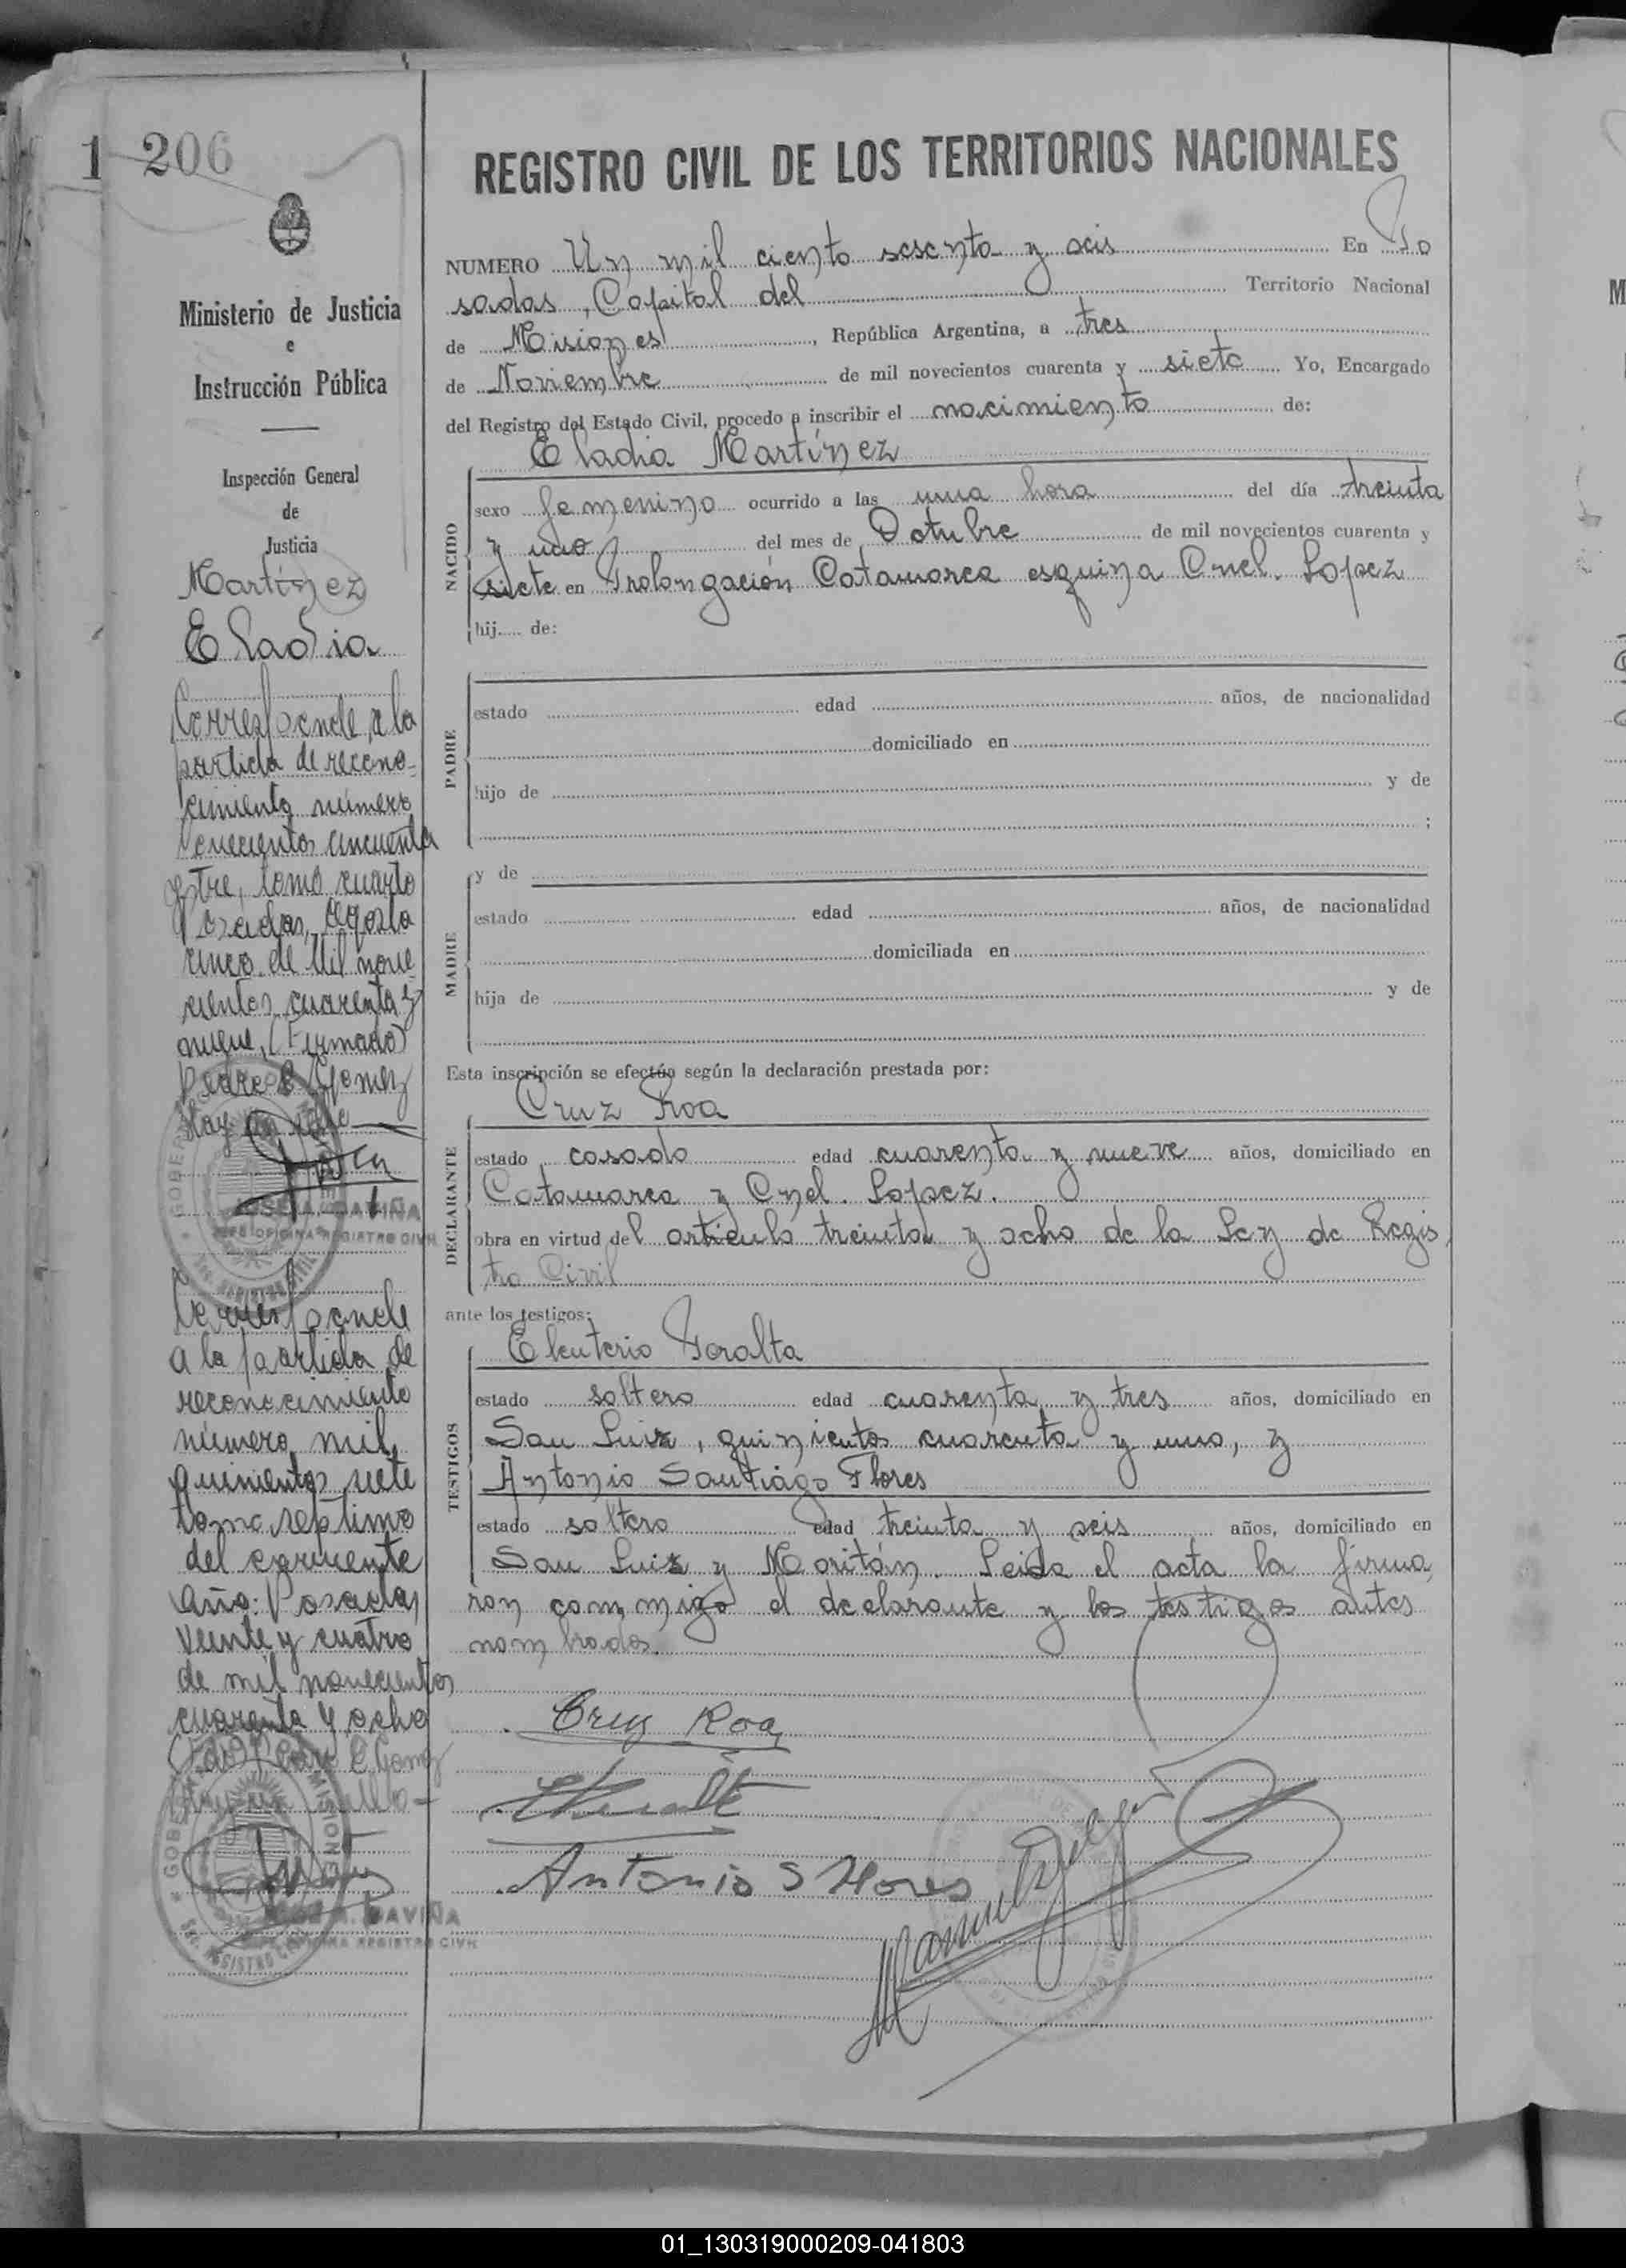 1 206
REGISTRO CIVIL DE LOS TERRITORIOS NACIONALES
NUMERO Un mil ciento sesenta y seis En Po
sadas, Capital del Territorio Nacional
de Misiones, República Argentina, a tres
de Noviembre de mil novecientos cuarenta y siete Yo, Encargado
del Registro del Estado Civil, procedo a inscribir el nacimiento de:
Eladia Martínez
NACIDO
sexo femenino ocurrido a las una hora del día treinta
y uno del mes de Octubre de mil novecientos cuarenta y
siete en Prolongación Catamarca esquina Cnel. Lopez
hij de:
PADRE
estado edad años, de nacionalidad
domiciliado en
hijo de y de
;
MADRE
y de
estado edad años, de nacionalidad
domiciliada en
hija de y de
Esta inscripción se efectúa según la declaración prestada por:
Cruz Roa
DECLARANTE
estado casado edad cuarenta y nueve años, domiciliado en
Catamarca y Cnel. Lopez.
obra en virtud del artículo treinta y ocho de la Ley de Regis
tro Civil
ante los testigos:
Eleuterio Peralta
TESTIGOS
estado soltero edad cuarenta y tres años, domiciliado en
San Luis, quinientos cuarenta y uno, y
Antonio Santiago Flores
estado soltero edad treinta y seis años, domiciliado en
San Luis y Moritán. Leida el acta la firma
ron conmigo el declarante y los testigos antes
nombrados.
Cruz Roa
Antonio S Flores
Ministerio de Justicia
e
Instrucción Pública
Inspección General
de
Justicia
Martínez
Eladia
Corresponde a la
partida de recono-
cimiento número
cincuenta
y tre, tomo cuarto
Posadas, Agosto
cinco de Mil nove
cientos cuarenta y
nueve, (Firmado)
Pedro E Gomez
Hay un sello
JOSE A. DAVIÑA
JEFE OFICINA REGISTRO CIVIL
Corresponde
a la partida de
reconocimiento
número mil
quinientos siete
tomo septimo
del corriente
año: Posadas
veinte y cuatro
de mil novecientos
cuarenta y ocho
Fdo Pedro E Gomez
Hay un sello-
JOSE A. DAVIÑA
OFICINA REGISTRO CIVIL
01_130319000209-041803